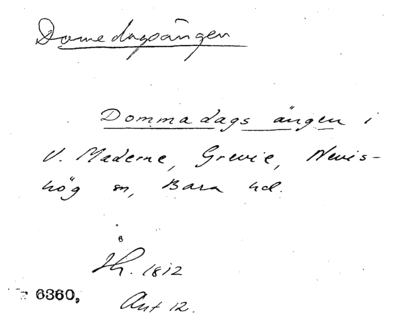 Domedagsängen
Dommadags ängen i
V. Maderne, Grevie, Nevis-
hög sn, Bara hd.
Th. 1812
6360, Ant 12.